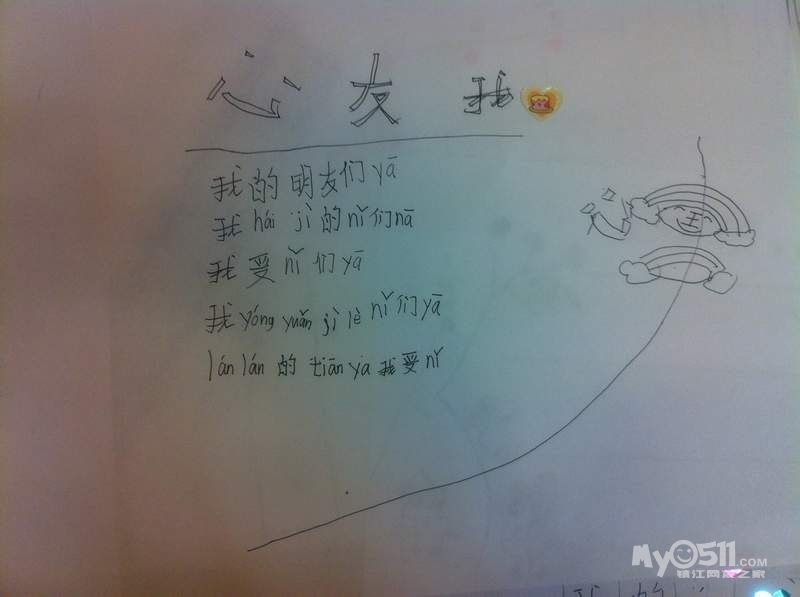 心友我
我的明友们yā
我hái jì的nǐ们nā
我受nǐ们yā
我yóng yuǎn jì lè nǐ们yā
lán lán 的 tiān ya 我受nǐ
心
王
MyO511.COM
镇江网友之家